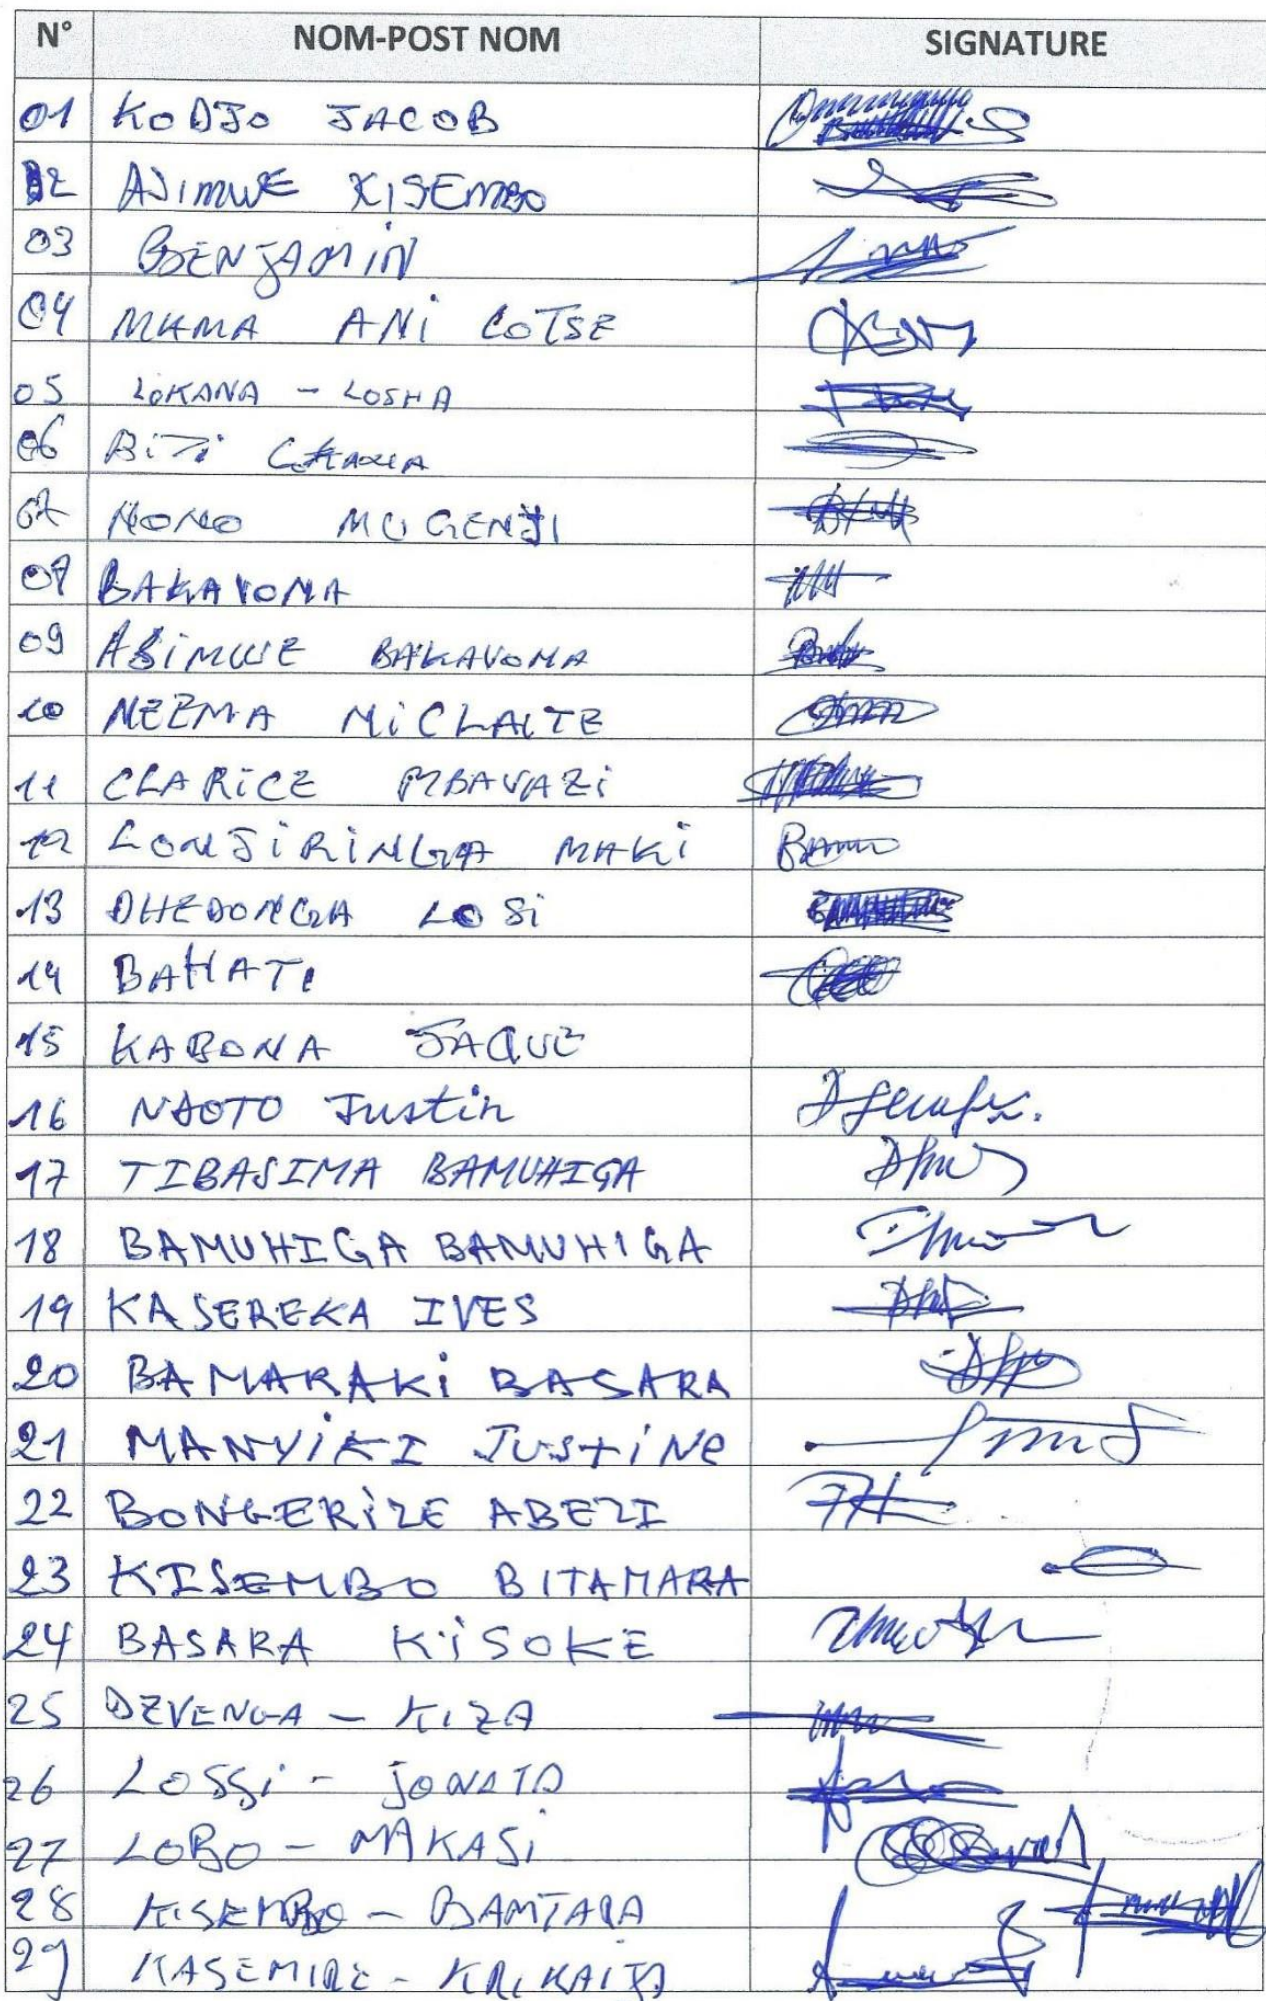 N° NOM-POST NOM SIGNATURE
01 KODJO JACOB
02 AJIMWE KISEMBO
03 BENJAMIN
04 MAMA ANI LOTSE
05 LOKANA - LOSHA
06 BiTi
07 NONO MUGENJI
08 BAKAVOMA
09 ABIMWE BAKAVOMA
10 NEEMA MiCLAITE
11 CLARiCE MBAVAZi
12 LONJiRiNGA MAKi
13 DHEDONGA LOSi
14 BAHATI
15 KABONA JAQUE
16 NDOTO Justin
17 TIBASIMA BAMUHIGA
18 BAMUHIGA BAMUHIGA
19 KASEREKA IVES
20 BAMARAKi BASARA
21 MANYiKI JUSTiNe
22 BONGERiZE ABEZI
23 KISEMBO BITAMARA
24 BASARA KiSOKE
25 DZVENGA - KIZA
26 LOSSi - JONATA
27 LOBO - MAKASi
28 KISEMBO - BAMTARA
29 KASEMIRE -